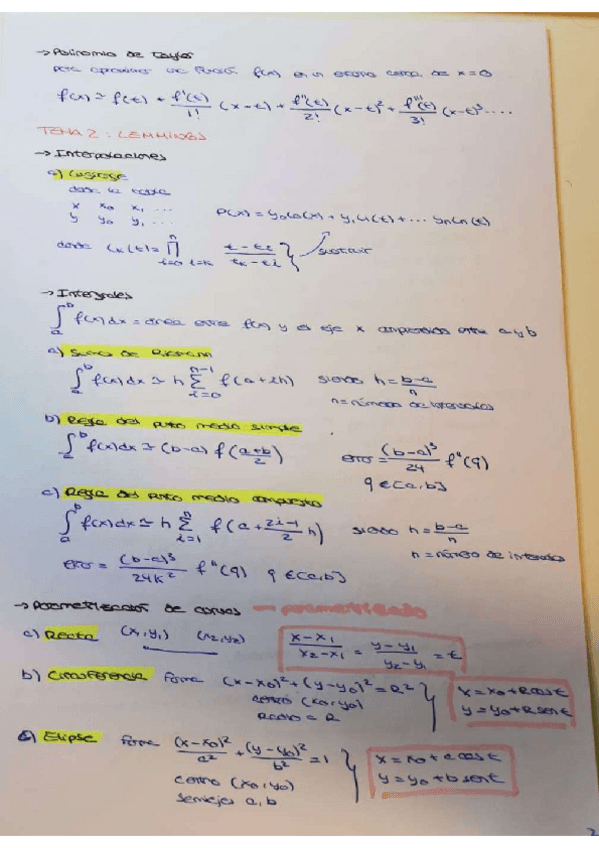 → Polinomio de Taylor
para aproximar una función f(x) en un entorno cerca de x=0
f(x) ≃ f(t) + f'(t)/1! (x-t) + f''(t)/2! (x-t)² + f'''(t)/3! (x-t)³ ....
TEMA 2: LEMMINGS
→ Interpolaciones
a) Lagrange
dada la tabla
x x₀ x₁ ...
y y₀ y₁ ...
P(x) = y₀L₀(x) + y₁L₁(t) + ... ynLn(t)
donde Lk(t) = ∏ⁿ i=0 i=k (t-ti)/(tk-ti) } sustituir
→ Integrales
∫ₐᵇ f(x)dx = área entre f(x) y el eje x comprendida entre a y b
a) Suma de Riemann
∫ₐᵇ f(x)dx ≃ h Σ i=0 n-1 f(a+ih) siendo h = (b-a)/n
n = número de intervalos
b) Regla del punto medio simple
∫ₐᵇ f(x)dx ≃ (b-a) f((a+b)/2) error = (b-a)³/24 f''(q)
q ∈ [a,b]
c) Regla del punto medio compuesto
∫ₐᵇ f(x)dx ≃ h Σ i=1 n f(a + (2i-1)/2 h) siendo h = (b-a)/n
n = número de intervalos
error = (b-a)³/24k² f''(q) q ∈ [a,b]
→ Parametrización de curvas — parametrizado
a) Recta (x₁,y₁) (x₂,y₂) (x-x₁)/(x₂-x₁) = (y-y₁)/(y₂-y₁) = t
b) Circunferencia forma (x-x₀)² + (y-y₀)² = R²
centro (x₀,y₀)
Radio = R
x = x₀ + R cos t
y = y₀ + R sen t
c) Elipse forma (x-x₀)²/a² + (y-y₀)²/b² = 1
centro (x₀,y₀)
semiejes a,b
x = x₀ + a cos t
y = y₀ + b sen t
2